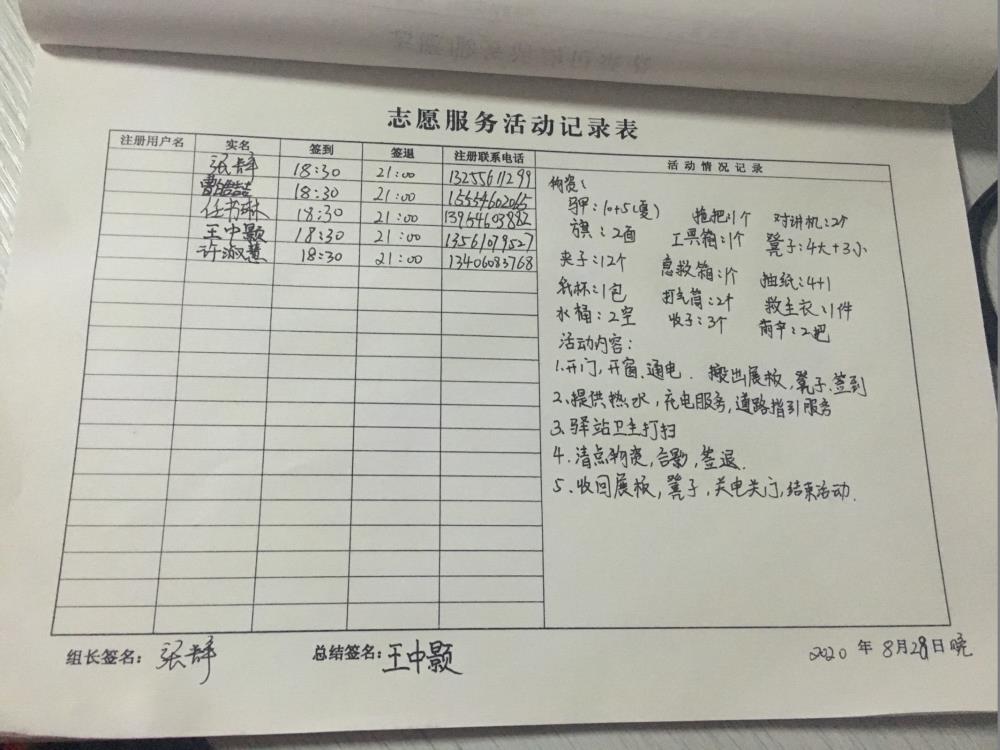 志愿服务活动记录表
注册用户名 实名 签到 签退 注册联系电话 活动情况记录
张辞 18:30 21:00 13255611299
18:30 21:00 15554602065
任书琳 18:30 21:00 13954603882
王中颢 18:30 21:00 13561079527
许淑慧 18:30 21:00 13406083768
物资:
马甲:10+5(夏) 拖把:1个 对讲机:2个
旗:2面 工具箱:1个 凳子:4大+3小
夹子:12个 急救箱:1个 抽纸:4+1
纸杯:1包 打气筒:2个 救生衣:1件
水桶:2空 收子:3个 雨伞:2把
活动内容:
1.开门,开窗、通电. 搬出展板,凳子、签到
2、提供热水,充电服务,道路指引服务
3、驿站卫生打扫
4.清点物资,合影,签退.
5、收回展板,凳子,关电关门,结束活动.
组长签名: 张辞 总结签名: 王中颢 2020年8月28日晚